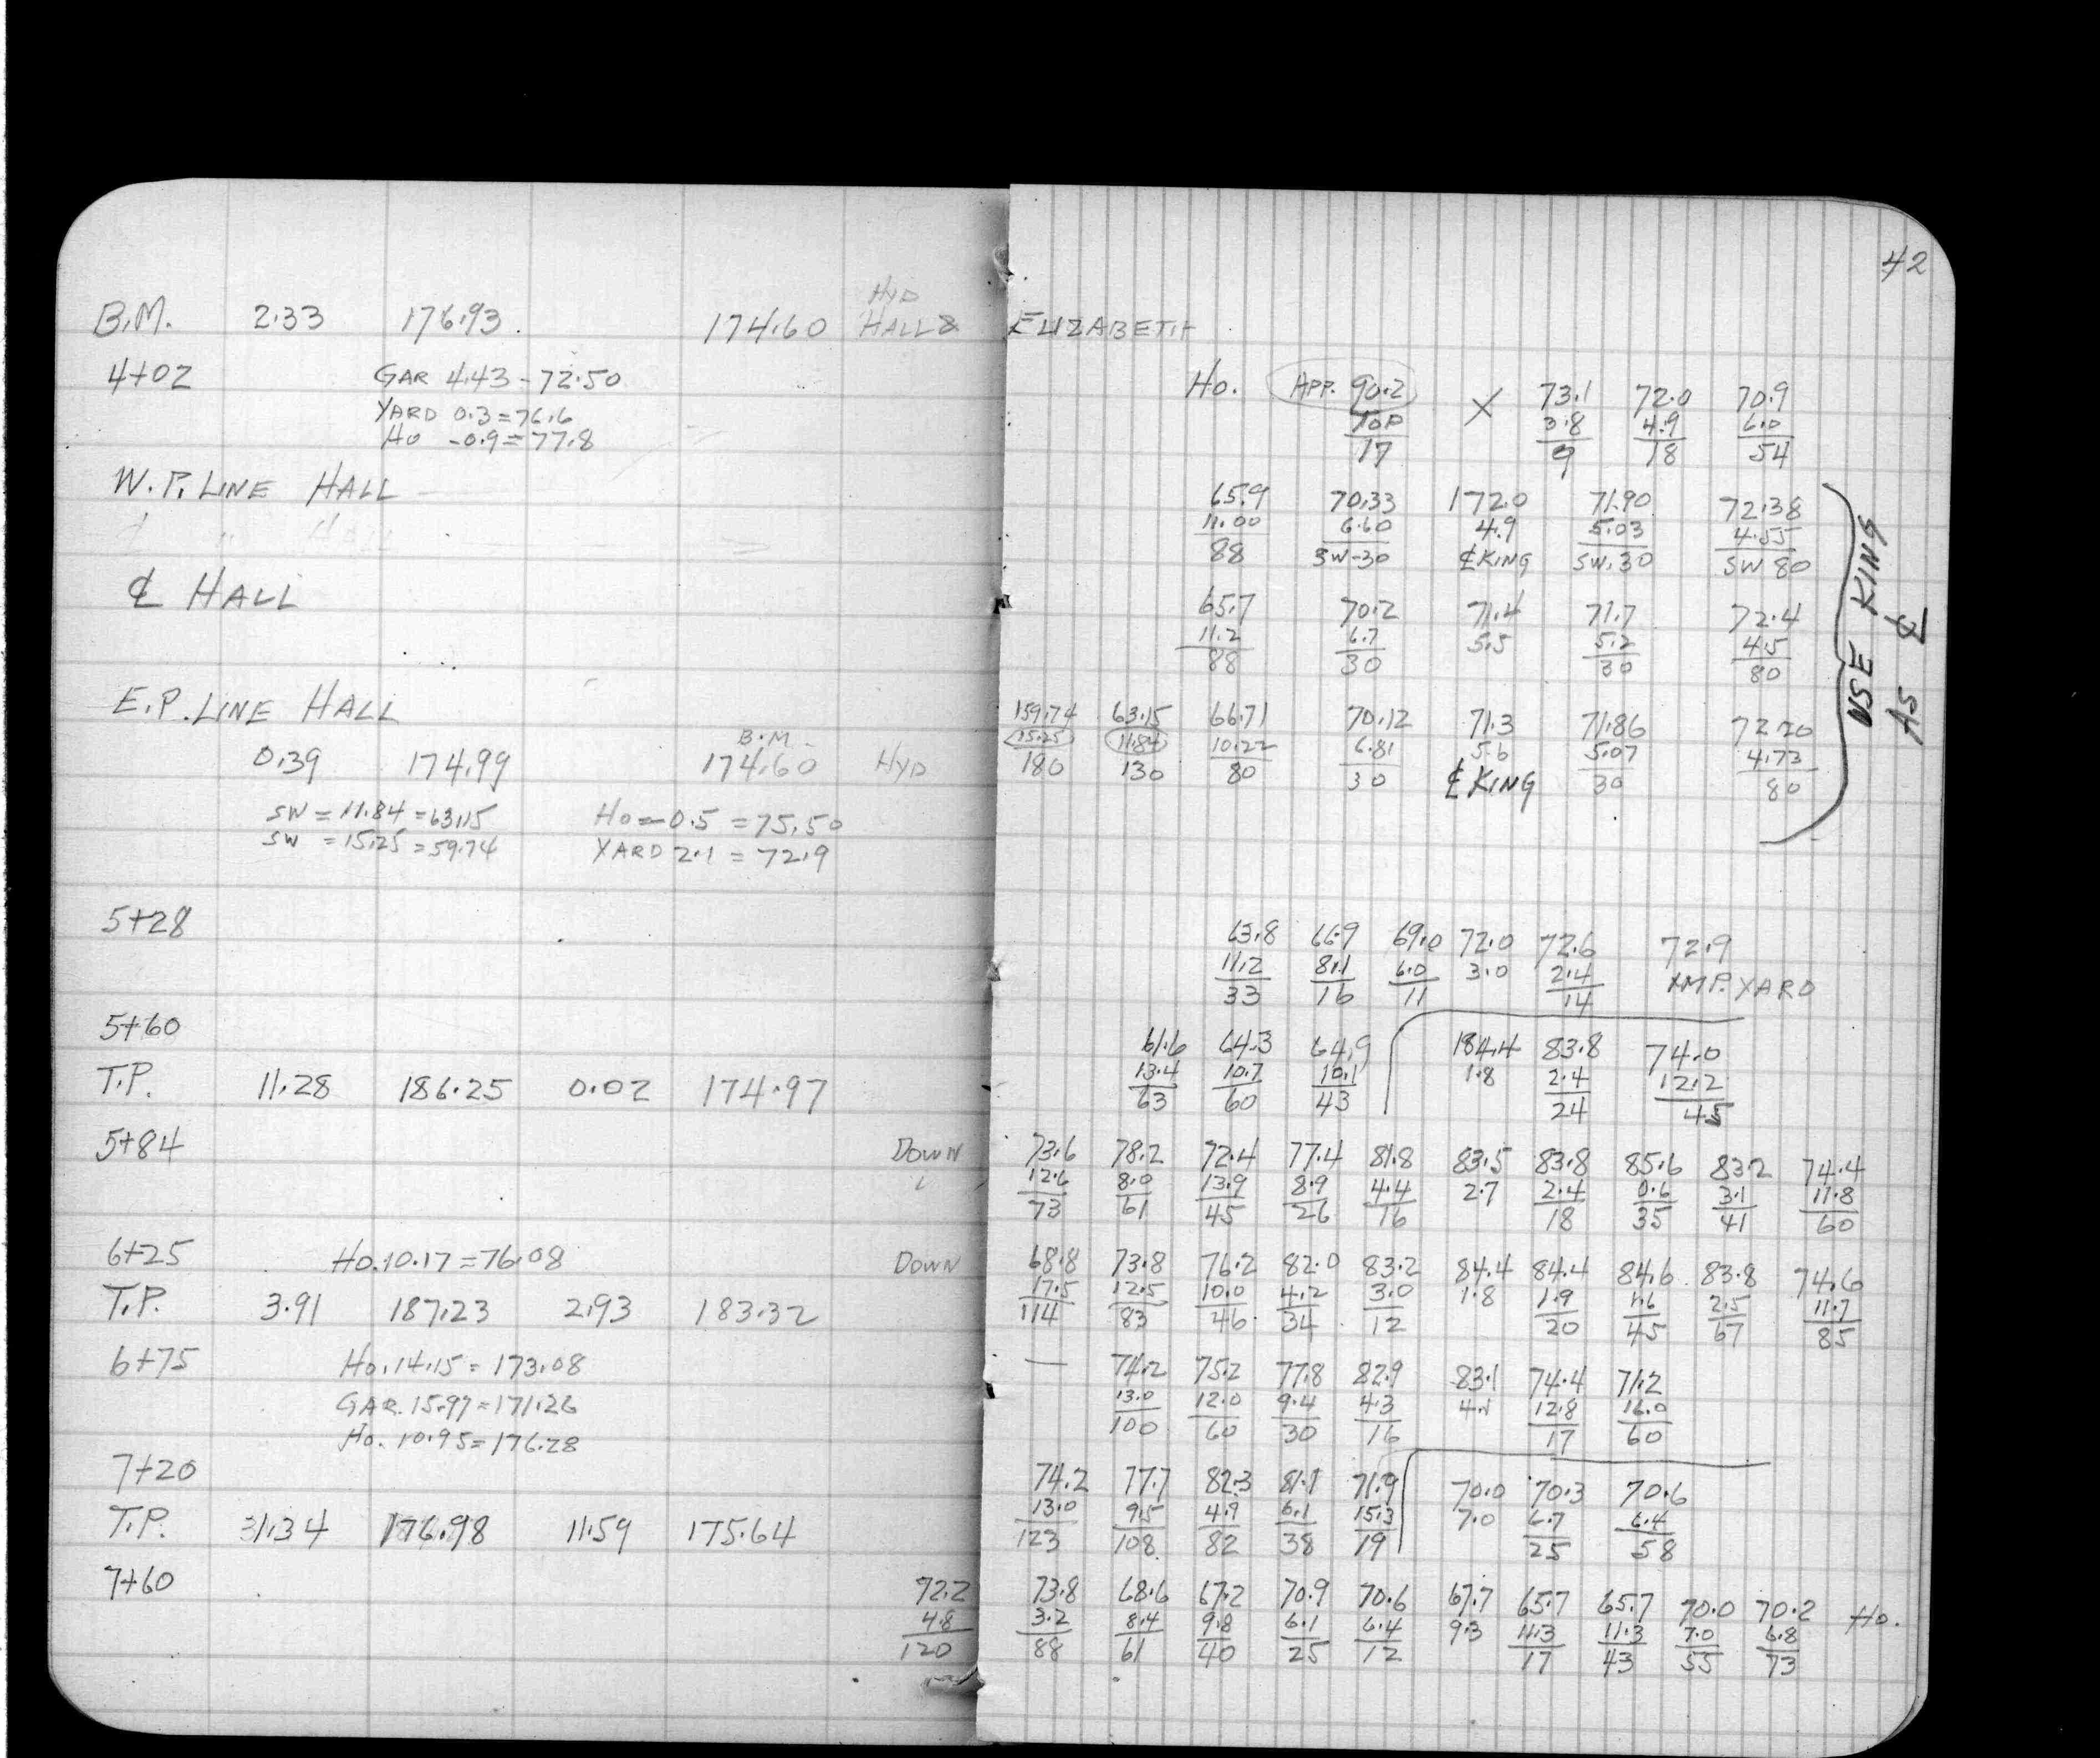 42
HYD
B.M. 2.33 176.93 174.60 HALL & ELIZABETH
4+02 GAR 4.43 - 72.50 Ho. APP. 90.2 X 73.1 72.0 70.9
YARD 0.3 = 76.6 TOP 3.8 4.9 6.0
Ho -0.9 = 77.8 17 9 18 54
W.P. LINE HALL 65.9 70.33 172.0 71.90 72.38
11.00 6.60 4.9 5.03 4.55
88 SW-30 ℄ KING SW.30 SW 80
℄ HALL 65.7 70.2 71.4 71.7 72.4
11.2 6.7 5.5 5.2 4.5
88 30 30 80
USE KING
AS ℄
E.P. LINE HALL 159.74 63.15 66.71 70.12 71.3 71.86 72.20
B.M. 15.25 11.84 10.22 6.81 5.6 5.07 4.73
0.39 174.99 174.60 HYD 180 130 80 30 ℄ KING 30 80
SW = 11.84 = 63.15 Ho = -0.5 = 75.50
SW = 15.25 = 59.74 YARD 2.1 = 72.9
5+28 63.8 66.9 69.0 72.0 72.6 72.9
11.2 8.1 6.0 3.0 2.4 IMP. YARD
33 16 11 14
5+60 61.6 64.3 64.9 184.4 83.8 74.0
T.P. 11.28 186.25 0.02 174.97 13.4 10.7 10.1 1.8 2.4 12.2
63 60 43 24 45
5+84 DOWN 73.6 78.2 72.4 77.4 81.8 83.5 83.8 85.6 83.2 74.4
12.6 8.0 13.9 8.9 4.4 2.7 2.4 0.6 3.1 11.8
73 61 45 26 16 18 35 41 60
6+25 Ho. 10.17 = 76.08 DOWN 68.8 73.8 76.2 82.0 83.2 84.4 84.4 84.6 83.8 74.6
T.P. 3.91 187.23 2.93 183.32 17.5 12.5 10.0 4.2 3.0 1.8 1.9 1.6 2.5 11.7
114 83 46 34 12 20 45 67 85
6+75 Ho. 14.15 = 173.08 — 74.2 75.2 77.8 82.9 83.1 74.4 71.2
GAR. 15.97 = 171.26 13.0 12.0 9.4 4.3 4.1 12.8 16.0
Ho. 10.95 = 176.28 100 60 30 16 17 60
7+20 74.2 77.7 82.3 81.1 71.9 70.0 70.3 70.6
T.P. 1.34 176.98 11.59 175.64 13.0 9.5 4.9 6.1 15.3 7.0 6.7 6.4
123 108 82 38 19 25 58
7+60 72.2 73.8 68.6 67.2 70.9 70.6 67.7 65.7 65.7 70.0 70.2 Ho.
4.8 3.2 8.4 9.8 6.1 6.4 9.3 11.3 11.3 7.0 6.8
120 88 61 40 25 12 17 43 55 73